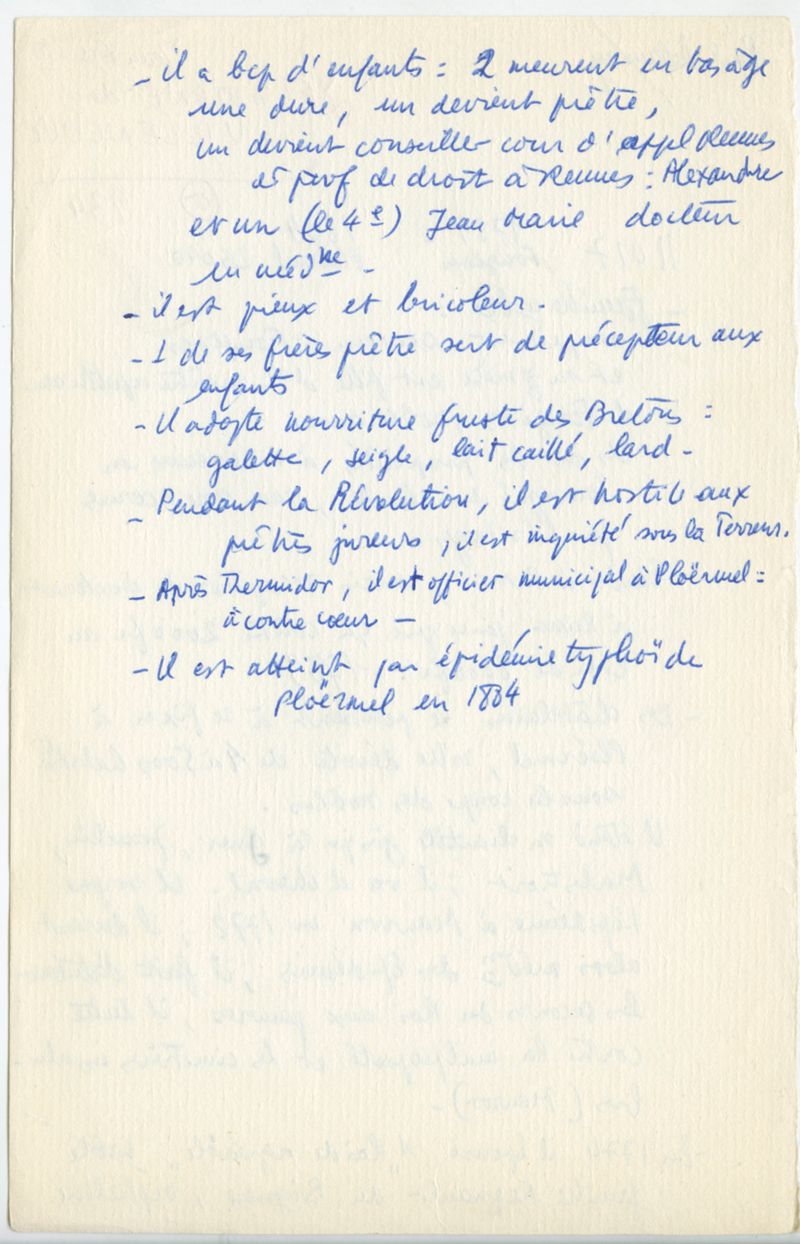 - il a bcp d'enfants : 2 meurent en bas âge
une dure, un devient prêtre,
un devient conseiller cour d'appel Rennes
et prof de droit à Rennes : Alexandre
et un (le 4e) Jean Marie docteur
en médne -
- il est pieux et bricoleur -
- 1 de ses frères prêtre sert de précepteur aux
enfants
- Il adopte nourriture fruste des Bretons :
galette, seigle, lait caillé, lard -
- Pendant la Révolution, il est hostile aux
prêtres jureurs, il est inquiété sous la Terreur.
- Après Thermidor, il est officier municipal à Ploërmel =
à contre cœur -
- Il est atteint par épidémie typhoïde
Ploërmel en 1804